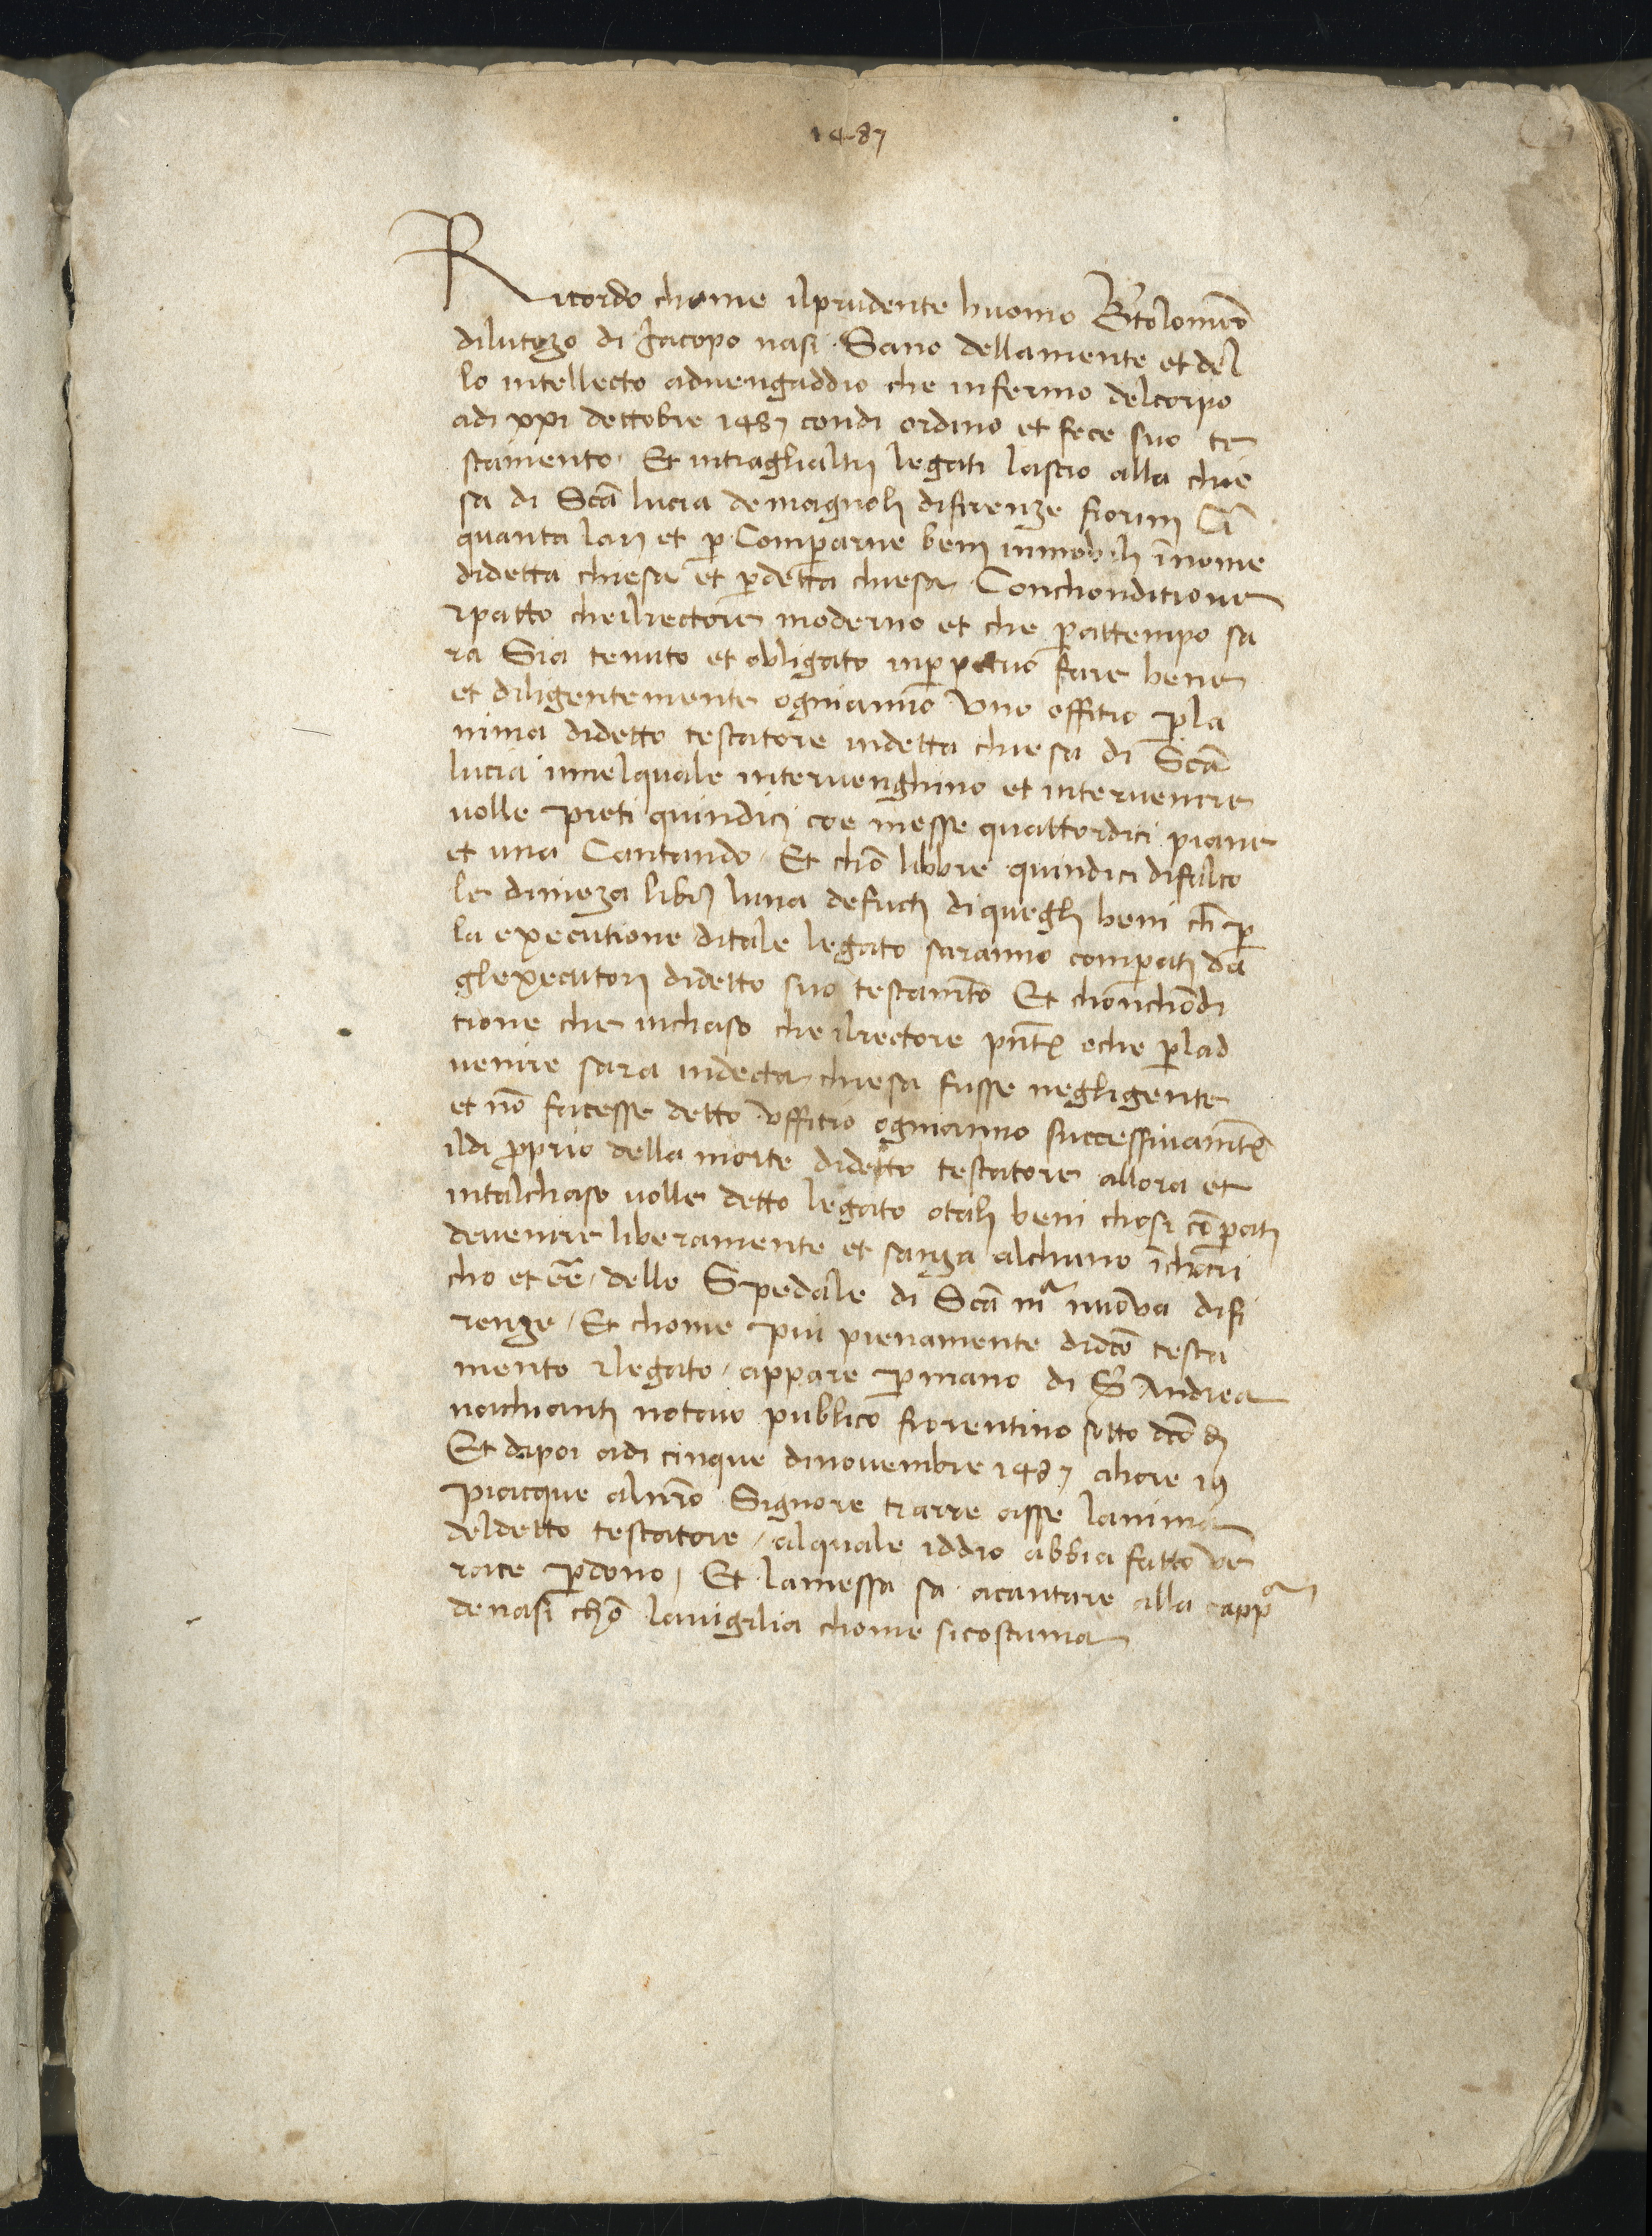 1487
Ricordo chome ilprudente huomo Bartolomeo
dilutozo di Jacopo nasi. Sano dellamente et del
lo intellecto advengaddio che infermo delcorpo
adi xxi dottobre 1487 condi ordino et fece suo te
stamento. Et intraglialtri legati lascio alla chie
sa di Scā lucia demagnoli difirenze fiorini Cī
quanta lar. et p Comparne beni immobili ī nome
didetta chiesa et p detta chiesa Conchonditione
⁊patto cheilrectore moderno et che pattempo sa
ra Sia tenuto et obligato inppetuo fare bene
et diligentemente ogniannio uno offitio p la
nima didetto testatore indetta chiesa di Scā
lucia innelquale intervenghino et intervenire
volle preti quindici coe messe quattordici piane
et una Cantando. Et chō libbre quindici difalco
le dimeza libr. luna defructi diquegli beni ch p
la executione ditale legato saranno compati da
gli executori didetto suo testamto Et chonchondi
tione che inchaso che ilrectore pnte eche p lad
venire sara indecta chiesa fusse negligente
et nō facesse detto uffitio ognianno successivamte
ildi proprio della morte didetto testatore allora et
intalchaso volle detto legato otali beni chosi cōpati
devenire liberamente et sanza alchuno īchari
cho et eē dello Spedale di Scā mª nuova difi
renze / Et chome piu pienamente didcō testa
mento ⁊legato / appare p mano di S Andrea
nachianti notaio publico fiorentino sotto dcō di
Et dipoi adi cinque dinovembre 1487 ahore 19
piacque alnrō Signore trarre asse lanima
deldetto testatore / alquale iddio abbia fatto ve
race pdono / Et lamessa sa acantare alla cappª
denasi chō lavigilia chome sicostuma